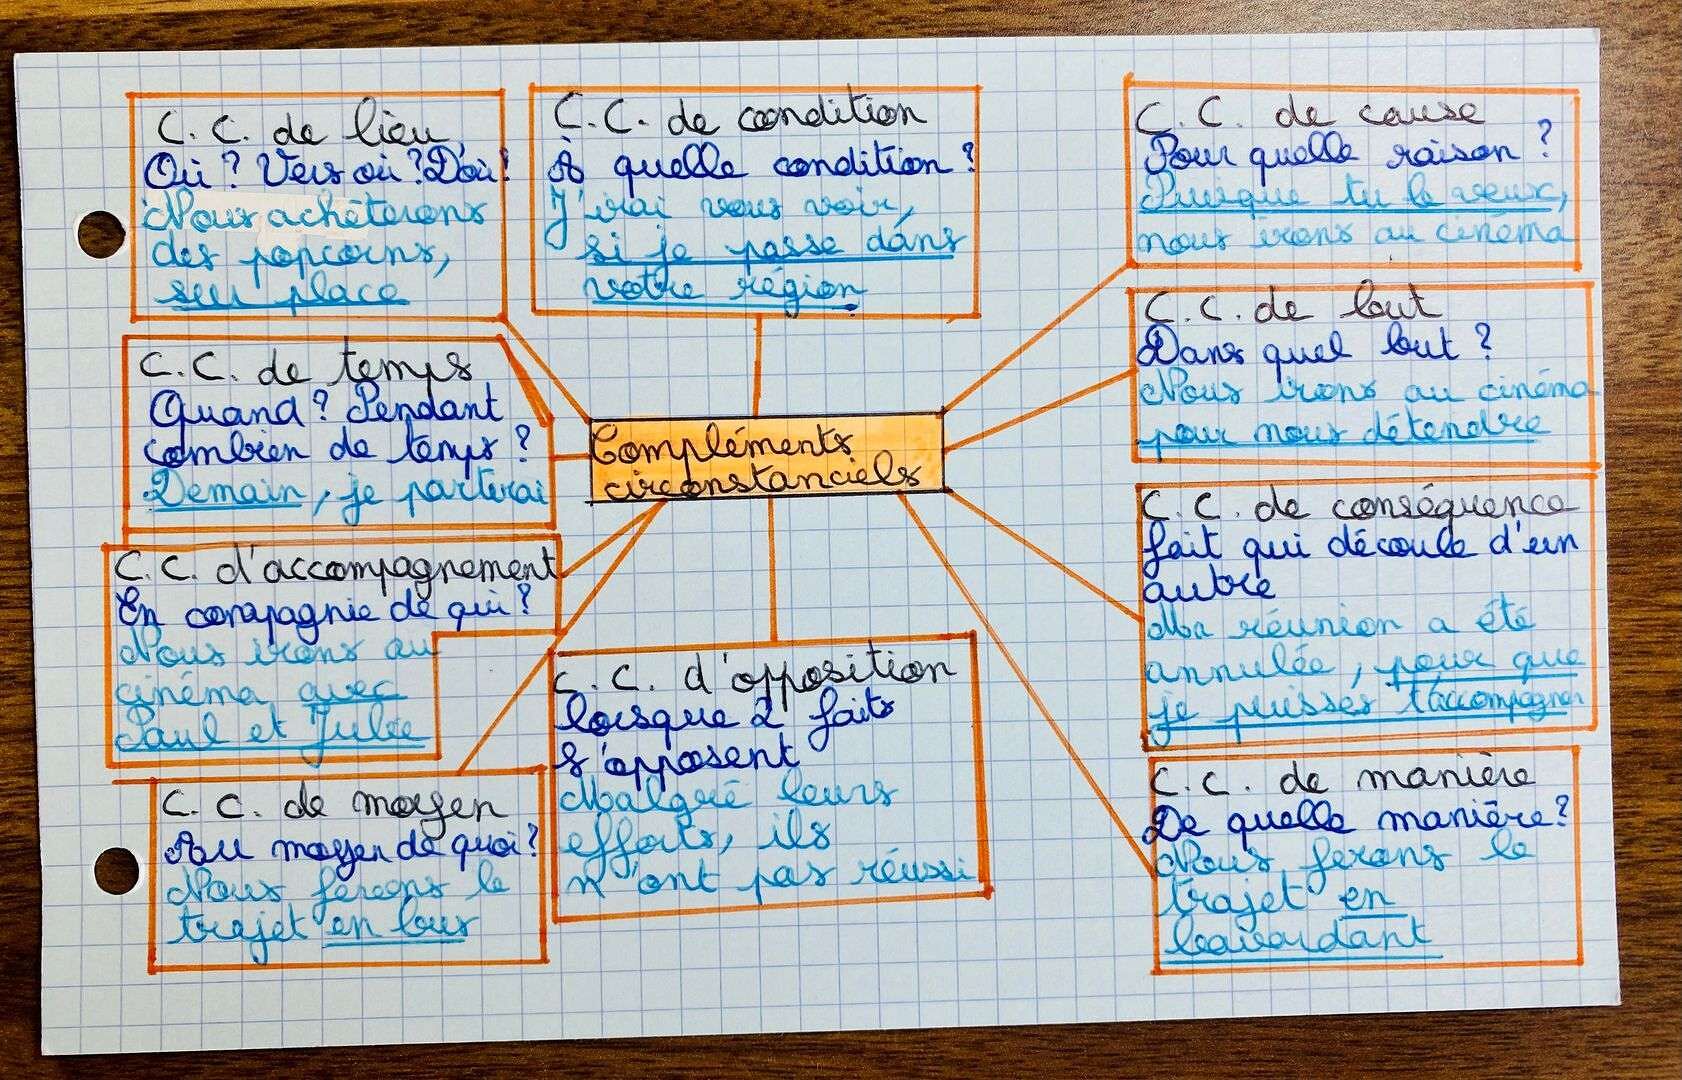 C.C. de lieu
Où ? Vers où ? D'où ?
Nous achèterons
des popcorns,
sur place
C.C. de condition
À quelle condition ?
J'irai vous voir,
si je passe dans
votre région.
C.C. de cause
Pour quelle raison ?
Puisque tu le veux,
nous irons au cinéma
C.C. de temps
Quand ? Pendant
combien de temps ?
Demain, je partirai
C.C. de but
Dans quel but ?
Nous irons au cinéma
pour nous détendre
Compléments
circonstanciels
C.C. d'accompagnement
En compagnie de qui ?
Nous irons au
cinéma avec
Paul et Julie
C.C. de conséquence
fait qui découle d'un
autre
Ma réunion a été
annulée, pour que
je puisses t'accompagner
C.C. d'opposition
lorsque 2 faits
s'opposent
Malgré leurs
efforts, ils
n'ont pas réussi
C.C. de moyen
Au moyen de quoi ?
Nous ferons le
trajet en bus
C.C. de manière
De quelle manière ?
Nous ferons le
trajet en
bavardant